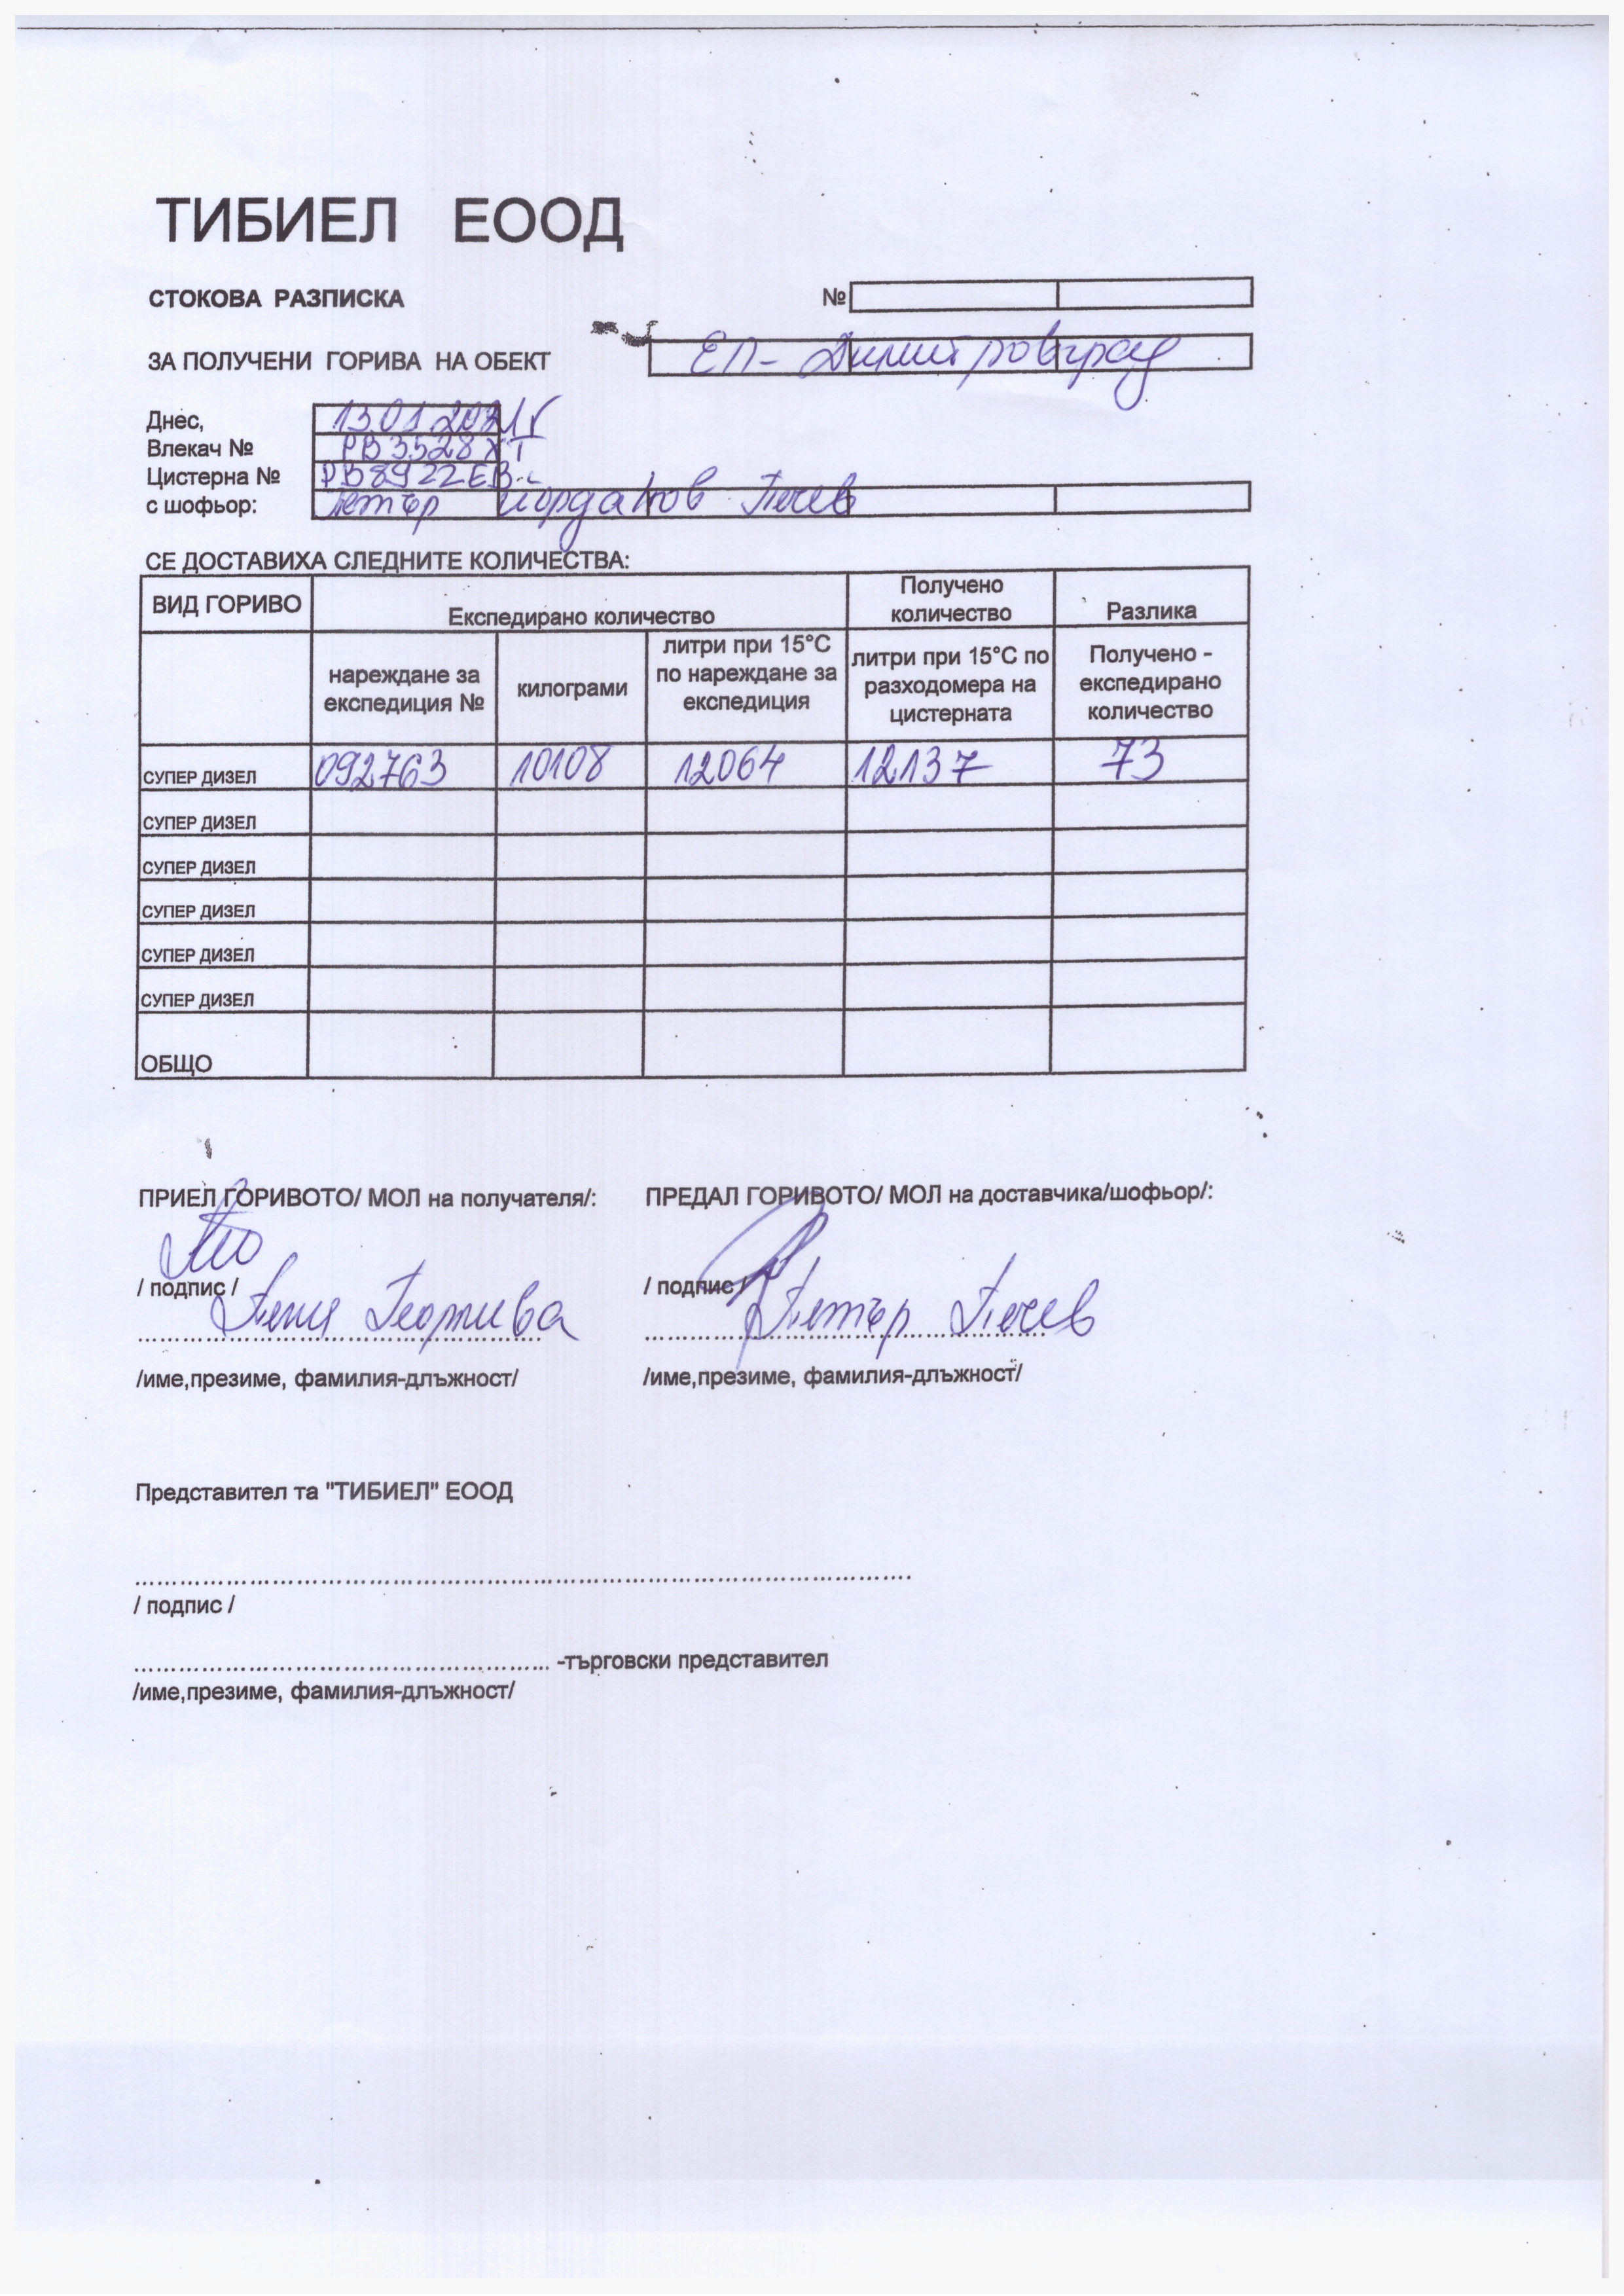 ТИБИЕЛ ЕООД
СТОКОВА РАЗПИСКА №
ЗА ПОЛУЧЕНИ ГОРИВА НА ОБЕКТ ЕП- Димитровград
Днес, 13.01.2021г
Влекач № РВ3528ХТ
Цистерна № РВ8922ЕВ
с шофьор: Петър Йорданов Печев
СЕ ДОСТАВИХА СЛЕДНИТЕ КОЛИЧЕСТВА:
ВИД ГОРИВО Експедирано количество Получено количество Разлика
нареждане за експедиция № килограми литри при 15°C по нареждане за експедиция литри при 15°C по разходомера на цистерната Получено - експедирано количество
СУПЕР ДИЗЕЛ 092763 10108 12064 12137 73
СУПЕР ДИЗЕЛ
СУПЕР ДИЗЕЛ
СУПЕР ДИЗЕЛ
СУПЕР ДИЗЕЛ
СУПЕР ДИЗЕЛ
ОБЩО
ПРИЕЛ ГОРИВОТО/ МОЛ на получателя/: ПРЕДАЛ ГОРИВОТО/ МОЛ на доставчика/шофьор/:
/ подпис / / подпис /
Георгиева Петър Печев
/име,презиме, фамилия-длъжност/ /име,презиме, фамилия-длъжност/
Представител та "ТИБИЕЛ" ЕООД
/ подпис /
-търговски представител
/име,презиме, фамилия-длъжност/